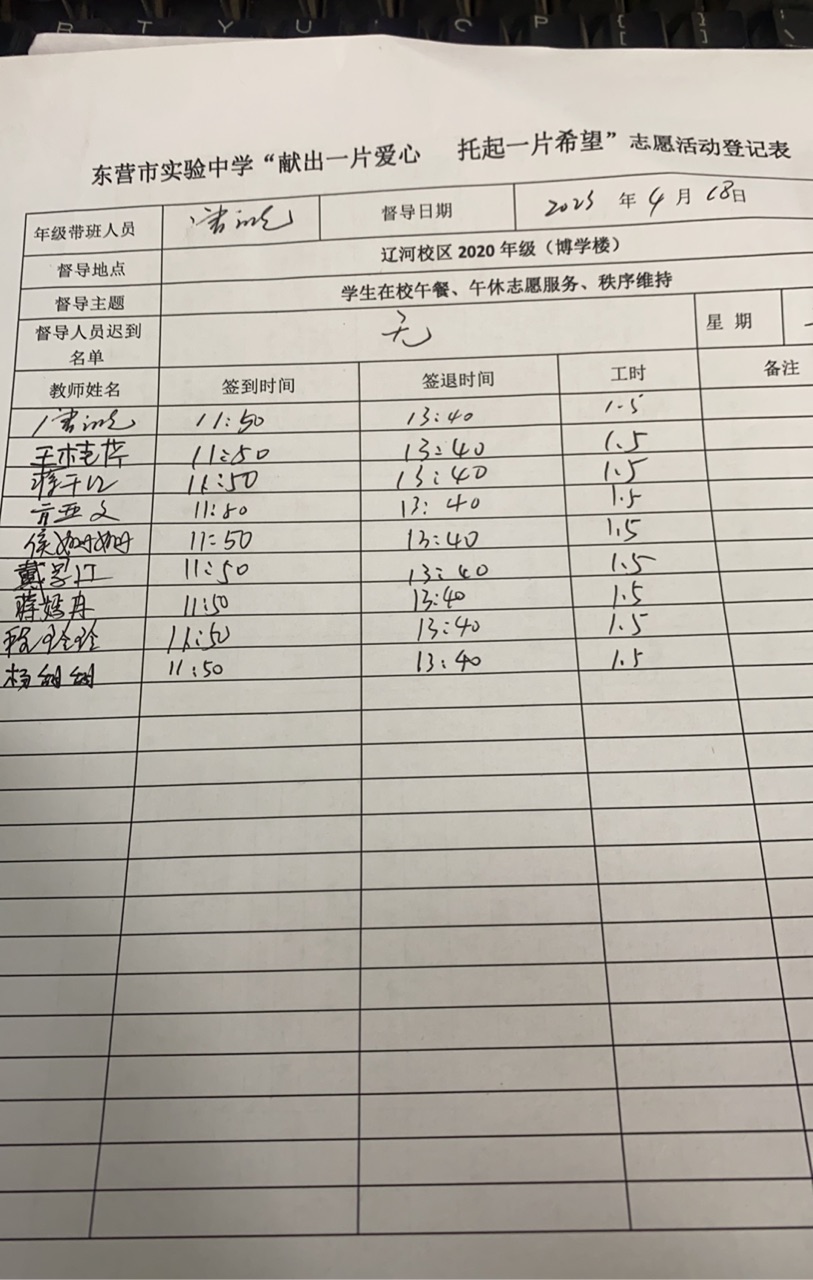 B T Y U O P { [ } ]
东营市实验中学“献出一片爱心 托起一片希望”志愿活动登记表
年级带班人员 督导日期 2023 年 4 月 18日
督导地点 辽河校区 2020 年级（博学楼）
督导主题 学生在校午餐、午休志愿服务、秩序维持
督导人员迟到名单 无 星 期
教师姓名 签到时间 签退时间 工时 备注
11:50 13:40 1.5
11:50 13:40 1.5
11:50 13:40 1.5
亓亚文 11:50 13:40 1.5
侯姗姗 11:50 13:40 1.5
11:50 13:40 1.5
蒋嫣冉 11:50 13:40 1.5
程玲玲 11:50 13:40 1.5
杨甜甜 11:50 13:40 1.5